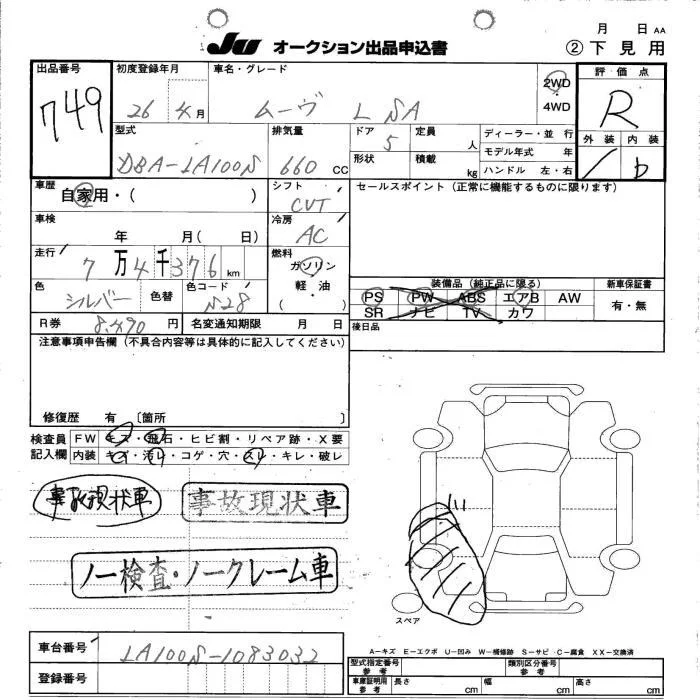 JU オークション出品申込書
月 日 AA
② 下見用
出品番号 749
初度登録年月 26 4月
車名・グレード ムーヴ L SA
2WD 4WD
評価点 R
外装 内装 b
型式 DBA-LA100S
排気量 660 CC
ドア 5
形状
定員 人
積載 kg
ディーラー・並行
モデル年式 年
ハンドル 左・右
車歴 自家用・( )
シフト CVT
セールスポイント(正常に機能するものに限ります)
車検 年 月( 日)
冷房 AC
走行 7万4千376km
燃料 ガソリン 軽油 ( )
色 シルバー 色替 色コード S28
装備品(純正品に限る) 新車保証書
PS PW ABS エアB AW 有・無
SR ナビ TV カワ
R券 8,490円 名変通知期限 月 日
後日品
注意事項申告欄(不具合内容等は具体的に記入してください)
修復歴 有 〔箇所 〕
検査員 FW キズ・飛石・ヒビ割・リペア跡・X要
記入欄 内装 キズ・汚レ・コゲ・穴・スレ・キレ・破レ
事故現状車 事故現状車
ノー検査・ノークレーム車
スペア
車台番号 LA100S-1083032
登録番号
A-キズ E-エクボ U-凹み W-補修跡 S-サビ C-腐食 XX-交換済
型式指定番号 参考 類別区分番号
車庫証明用 参考 長さ cm 幅 cm 高さ cm